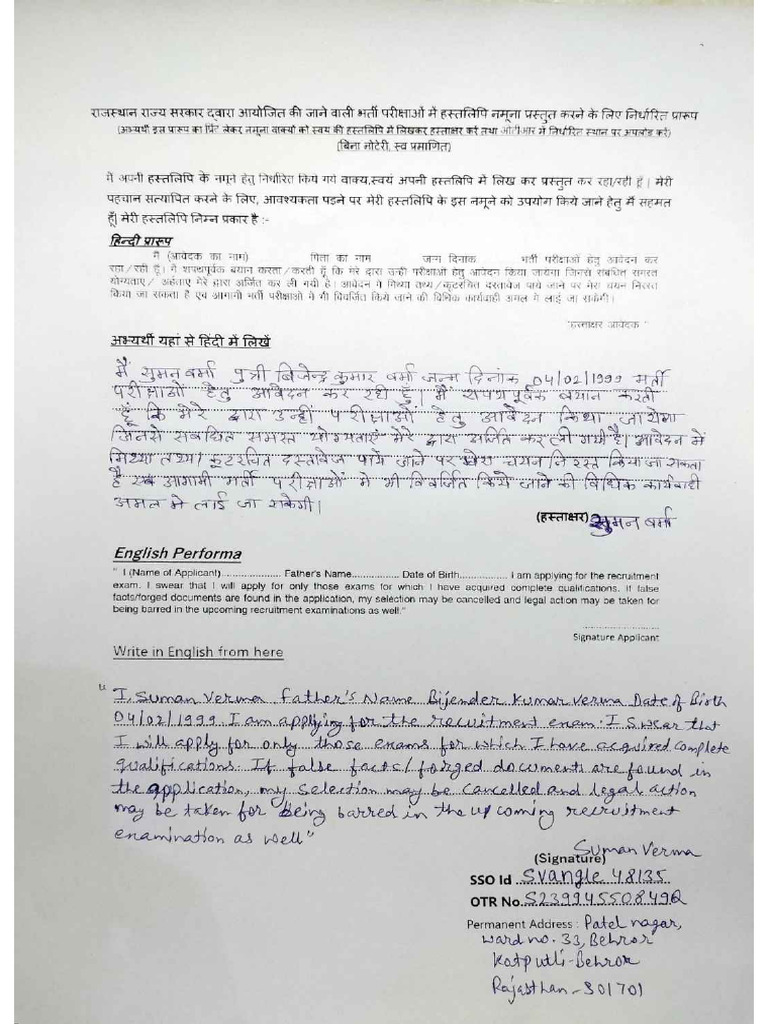 राजस्थान राज्य सरकार द्वारा आयोजित की जाने वाली भर्ती परीक्षाओं में हस्तलिपि नमूना प्रस्तुत करने के लिए निर्धारित प्रारूप
(अभ्यर्थी इस प्रारूप का प्रिंट लेकर नमूना वाक्यो को स्वयं की हस्तलिपि में लिखकर हस्ताक्षर करें तथा ओटीआर में निर्धारित स्थान पर अपलोड करें)
(बिना नोटेरी, स्व प्रमाणित)
मैं अपनी हस्तलिपि के नमूने हेतु निर्धारित किये गये वाक्य,स्वयं अपनी हस्तलिपि में लिख कर प्रस्तुत कर रहा/रही हूँ। मेरी
पहचान सत्यापित करने के लिए, आवश्यकता पड़ने पर मेरी हस्तलिपि के इस नमूने को उपयोग किये जाने हेतु मैं सहमत
हूँ। मेरी हस्तलिपि निम्न प्रकार है :-
हिन्दी प्रारूप
मैं (आवेदक का नाम) पिता का नाम जन्म दिनांक भर्ती परीक्षाओं हेतु आवेदन कर
रहा / रही हूँ। मैं शपथपूर्वक बयान करता / करती हूँ कि मेरे द्वारा उन्ही परीक्षाओं हेतु आवेदन किया जायेगा जिनसे संबंधित समस्त
योग्यताए / अर्हताए मेरे द्वारा अर्जित कर ली गयी है। आवेदन में मिथ्या तथ्य / कूटरचित दस्तावेज पाये जाने पर मेरा चयन निरस्त
किया जा सकता है एवं आगामी भर्ती परीक्षाओं में भी विवर्जित किये जाने की विधिक कार्यवाही अमल में लाई जा सकेगी।
हस्ताक्षर आवेदक "
अभ्यर्थी यहां से हिंदी में लिखें
मैं सुमन वर्मा पुत्री बिजेन्द्र कुमार वर्मा जन्म दिनांक 04/02/1999 भर्ती
परीक्षाओं हेतु आवेदन कर रही हूँ। मैं शपथपूर्वक बयान करती
हूँ कि मेरे द्वारा उन्हीं परीक्षाओं हेतु आवेदन किया जायेगा
जिनसे सबंधित समस्त योग्यताएं मेरे द्वारा अर्जित कर ली गयी है। आवेदन में
मिथ्या तथ्य/ कूटरचित दस्तावेज पाये जाने पर मेरा चयन निरस्त किया जा सकता
है एवं आगामी भर्ती परीक्षाओं में भी विवर्जित किये जाने की विधिक कार्यवाही
अमल मे लाई जा सकेगी।
(हस्ताक्षर) सुमन वर्मा
English Performa
" I (Name of Applicant).................... Father's Name.............. Date of Birth.............. I am applying for the recruitment
exam. I swear that I will apply for only those exams for which I have acquired complete qualifications. If false
facts/forged documents are found in the application, my selection may be cancelled and legal action may be taken for
being barred in the upcoming recruitment examinations as well."
Signature Applicant
Write in English from here
" I, Suman Verma Father's Name Bijender Kumar Verma Date of Birth
04/02/1999. I am applying for the recruitment exam. I swear that
I will apply for only those exams for which I have acquired complete
qualifications. If false facts/forged documents are found in
the application, my selection may be cancelled and legal action
may be taken for being barred in the upcoming recruitment
examination as well"
(Signature) Suman Verma
SSO Id Svangle 48135
OTR No. S239945508492
Permanent Address : Patel nagar,
ward no. 33, Behror
Kotputli-Behror
Rajasthan-301701